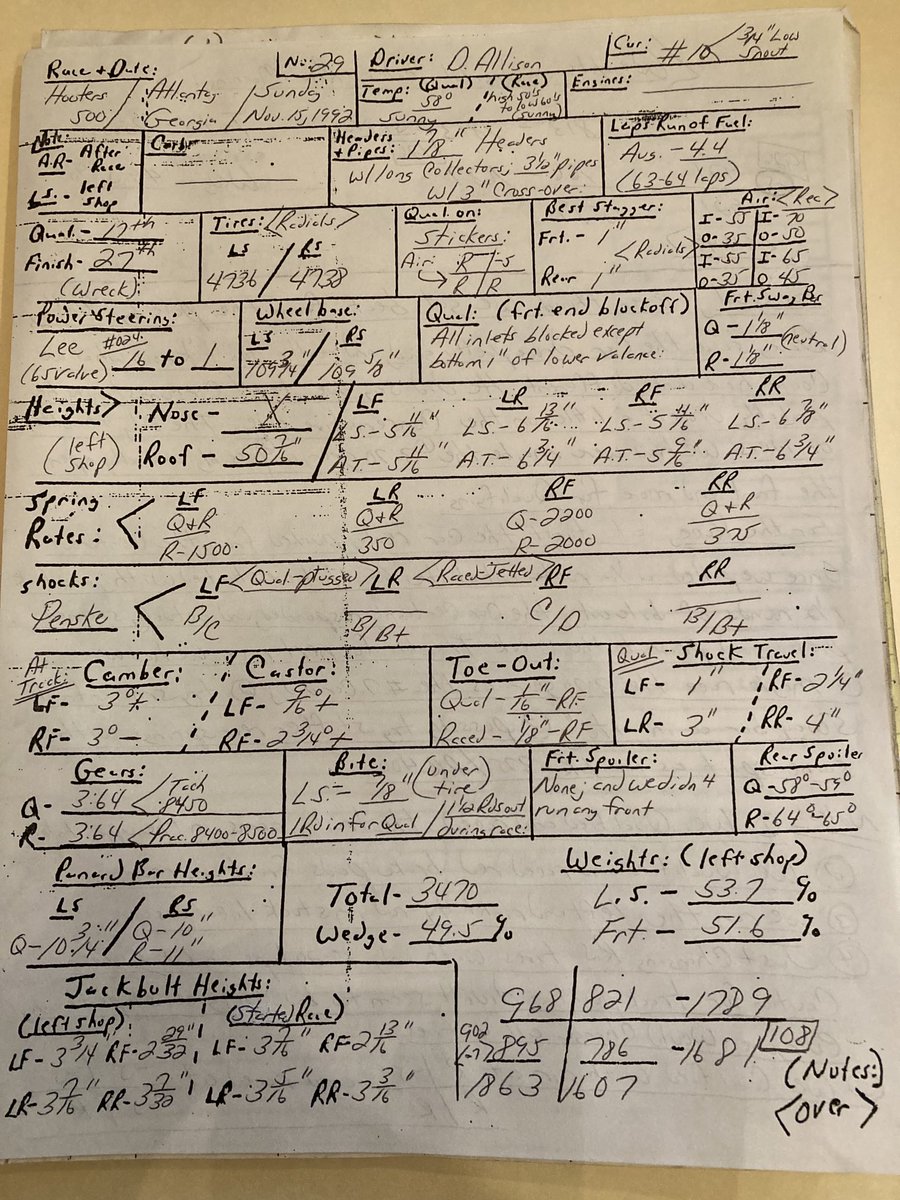 Race + Date:
Hooters 500 / Atlanta, Georgia / Sunday Nov. 15, 1992
No: 29
Driver: D. Allison
Car: #16 / 3/4" Low Snout
Temp: (Qual) 58° Sunny / (Race) high 50's to low 60's (Sunny)
Engines:
Note:
A.R- After Race
L.S. - left Shop
Carb:
Headers + Pipes: 1 7/8" Headers
w/long Collectors; 3 1/2" pipes
w/ 3" Cross-over.
Laps Run of Fuel:
Avg. - 4.4
(63-64 laps)
Qual. - 17th
Finish - 27th
(Wreck)
Tires: <Radials>
LS / RS
4736 / 4738
Qual on:
Stickers:
Air: R | -5
R | R
Best Stagger:
Frt. - 1"
<Radials>
Rear 1"
Air: <Rec>
I-55 | I-70
O-35 | O-50
I-55 | I-65
O-35 | O-45
Power Steering:
Lee #024
(65 valve) 16 to 1
Wheel base:
LS / RS
109 3/4" / 109 5/8"
Qual: (frt. end blockoff)
All inlets blocked except
bottom 1" of lower valance.
Frt. Sway Bar
Q - 1 1/8"
(neutral)
R - 1 1/8"
Heights> Nose - X
(left shop) Roof - 50 7/16"
LF LR RF RR
L.S. - 5 11/16" L.S. - 6 13/16" L.S. - 5 11/16" L.S. - 6 7/8"
A.T. - 5 11/16" A.T. - 6 3/4" A.T. - 5 9/16" A.T. - 6 3/4"
Spring Rates: <
LF LR RF RR
Q+R Q+R Q-2200 Q+R
R-1500 350 R-2000 375
Shocks: LF <Qual-plugged> LR <Raced-Jetted> RF RR
Penske < B/C B/B+ C/D B/B+
At Track:
Camber:
LF- 3° +
RF- 3° -
Castor:
LF- 9/16° +
RF- 2 3/4° +
Toe-Out:
Qual - 1/16" - RF
Raced - 1/8" - RF
Qual Shock Travel:
LF- 1" / RF- 2 1/4"
LR- 3" / RR- 4"
Gears:
Q- 3:64 < Tach 8450
R- 3:64 < Prac. 8400-8500
Bite:
L.S. - 7/8" (under tire)
1 Rd in for Qual / 1 1/2 Rds out during race.
Frt. Spoiler:
None; and we didn't
run any front
Rear Spoiler
Q - 58°-59°
R - 64°-65°
Panard Bar Heights:
LS / RS
Q-10 3/4" / Q-10"
R-11"
Weights: (left shop)
Total - 3470 L.S. - 53.7 %
Wedge - 49.5 % Frt. - 51.6 %
Jackbolt Heights:
(left shop) (Started Race)
LF- 3 3/4" RF- 2 29/32" LF- 3 7/16" RF- 2 13/16"
LR- 3 7/16" RR- 3 7/32" LR- 3 5/16" RR- 3 3/16"
968 | 821 - 1789
902
(-7) 895 | 786 - 1681 108
1863 | 1607
(Notes:)
<Over>